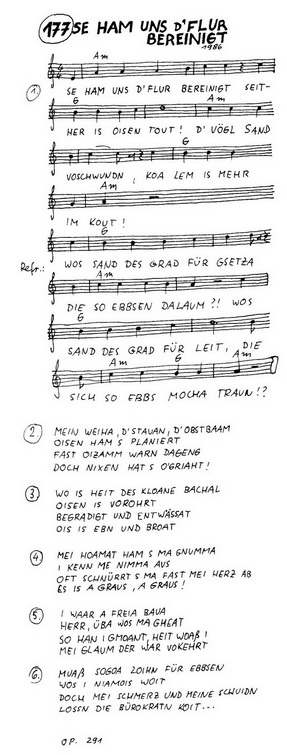 177 SE HAM UNS D'FLUR
BEREINIGT
1986
Am
1. SE HAM UNS D'FLUR BEREINIGT SEIT-
G Am
HER IS OISEN TOUT! D'VÖGL SAND
G
VOSCHWUNDN, KOA LEM IS MEHR
Am
IM KOUT!
G
Refr.: WOS SAND DES GRAD FÜR GSETZA
Am
DIE SO EBBSEN DALAUM?! WOS
G
SAND DES GRAD FÜR LEIT, DIE
Am G Am
SICH SO EBBS MOCHA TRAUN!?
2. MEIN WEIHA, D'STAUAN, D'OBSTBAAM
OISEN HAM S PLANIERT
FAST OIZAMM WARN DAGENG
DOCH NIXEN HAT S O'GRIAHT!
3. WO IS HEIT DES KLOANE BACHAL
OISEN IS VOROHRT
BEGRADIGT UND ENTWÄSSAT
OIS IS EBN UND BROAT
4. MEI HOAMAT HAM S MA GNUMMA
I KENN ME NIMMA AUS
OFT SCHNÜRRT S MA FAST MEI HERZ AB
ES IS A GRAUS, A GRAUS!
5. I WAAR A FREIA BAUA
HERR, ÜBA WOS MA GHEAT
SO HAN I GMOANT, HEIT WOAß I
MEI GLAUM DER WAR VOKEHRT
6. MUAß SOGOA ZOIHN FÜR EBBSEN
WOS I NIAMOIS WOIT
DOCH MEI SCHMERZ UND MEINE SCHUIDN
LOSSN DIE BÜROKRATN KOIT...
OP. 291